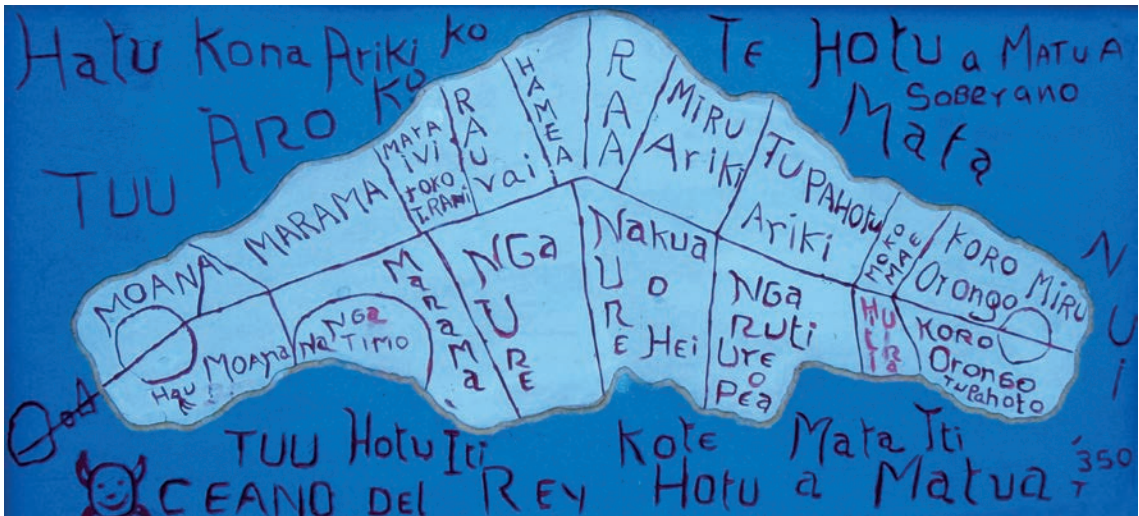 Hatu Kona Ariki ko
ARO KO
TUU
TE HOTU a MATUA
Soberano
Mata
NUi
MOANA
MARAMA
MATA
iVi
TOKO
T.RANi
RAU
vai
HAMEA
RAA
MiRU
Ariki
TUPAHOTU
Ariki
MOKO
MAE
KORO MiRU
Orongo
MOANA
HAU
NGa
Na TIMO
MaRaMa
NGa
URE
Nakua
URE O
Hei
NGa
RUTi
URe
O
Pea
KORO
Orongo
TUPAHOTO
TUU Hotu Iti Kote Mata Iti
CEANO DEL REY Hotu a Matua
350